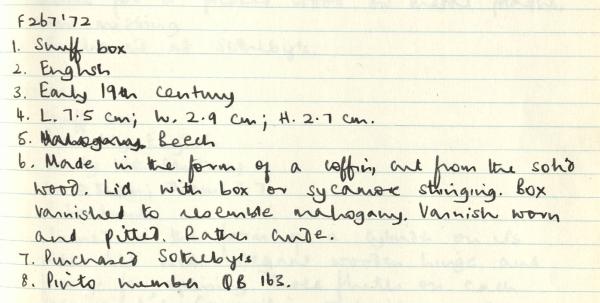 F267'72
1. Snuff box
2. English
3. Early 19th century
4. L. 7.5 cm; W. 2.9 cm; H. 2.7 cm.
5. Mahogany Beech
6. Made in the form of a coffin, cut from the solid
wood. Lid with box or sycamore stringing. Box
varnished to resemble mahogany. Varnish worn
and pitted. Rather crude.
7. Purchased Sotheby's
8. Pinto number QB 163.